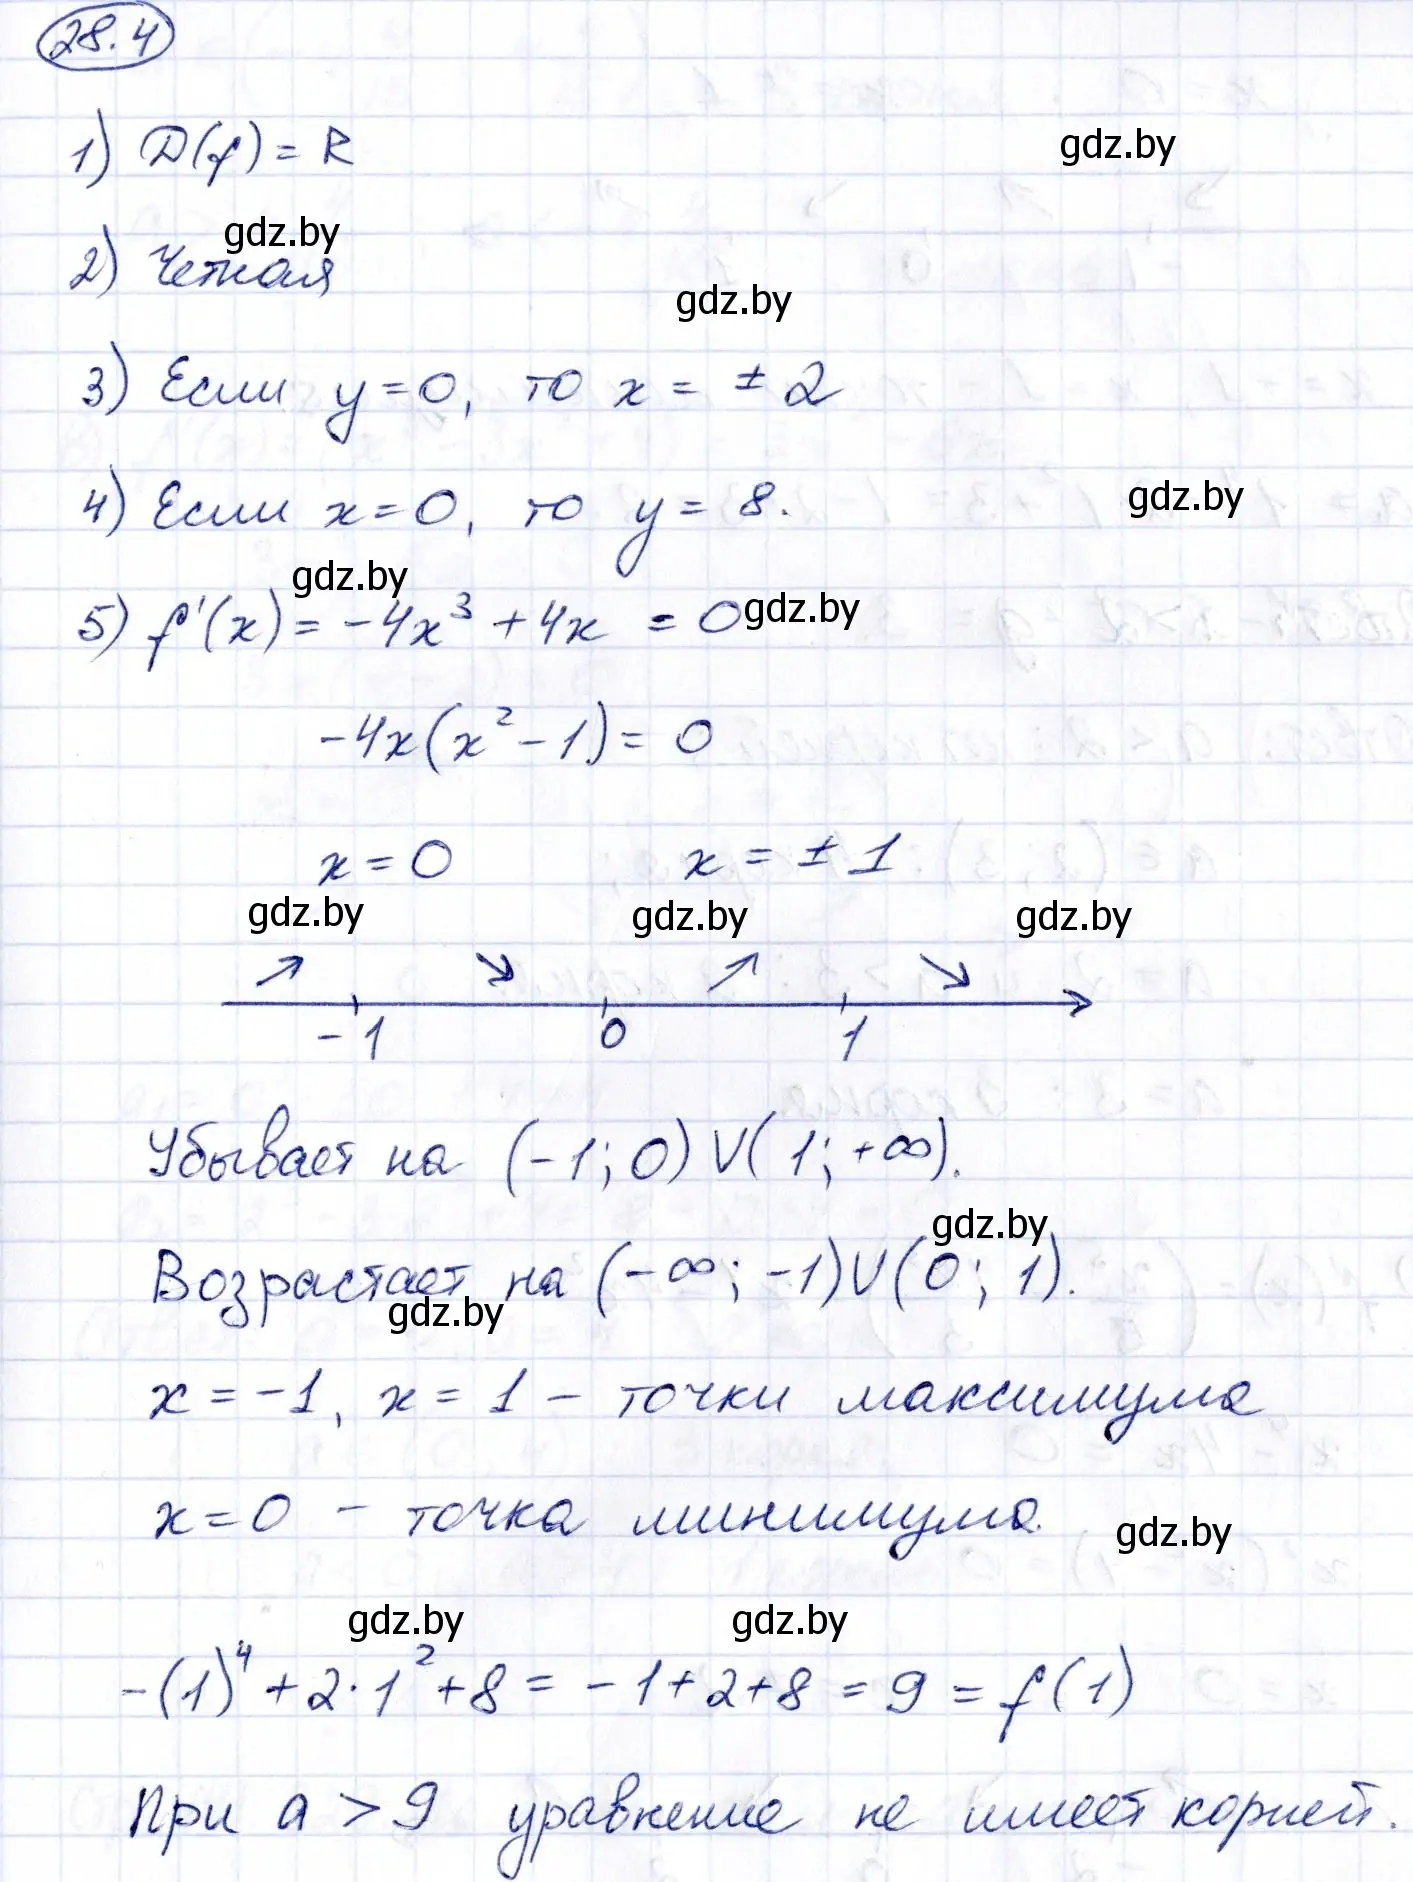 28.4
1) D(f) = R
gdz.by
gdz.by
2) Четная
gdz.by
3) Если y=0, то x = ±2
4) Если x=0, то y = 8.
gdz.by
gdz.by
5) f'(x) = -4x³ + 4x = 0
gdz.by
-4x(x² - 1) = 0
x = 0 x = ±1
gdz.by gdz.by gdz.by
-1 0 1
Убывает на (-1; 0) V (1; +∞).
gdz.by
Возрастает на (-∞; -1) V (0; 1).
gdz.by
x = -1, x = 1 - точки максимума
x = 0 - точка минимума.
gdz.by
gdz.by gdz.by
-(1)⁴ + 2·1² + 8 = -1+2+8 = 9 = f(1)
При a > 9 уравнение не имеет корней.